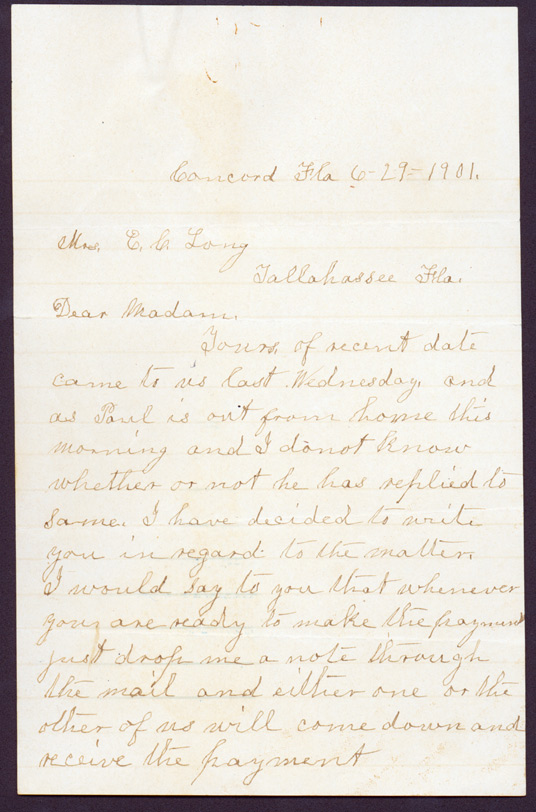 Concord Fla 6-29-1901.
Mrs. E. C Long
Tallahassee Fla.
Dear Madam.
Yours, of recent date
came to us last Wednesday, and
as Paul is out from home this
morning and I do not know
whether or not he has replied to
same. I have decided to write
you in regard to the matter.
I would say to you that whenever
you are ready to make the payment
just drop me a note through
the mail and either one or the
other of us will come down and
receive the payment